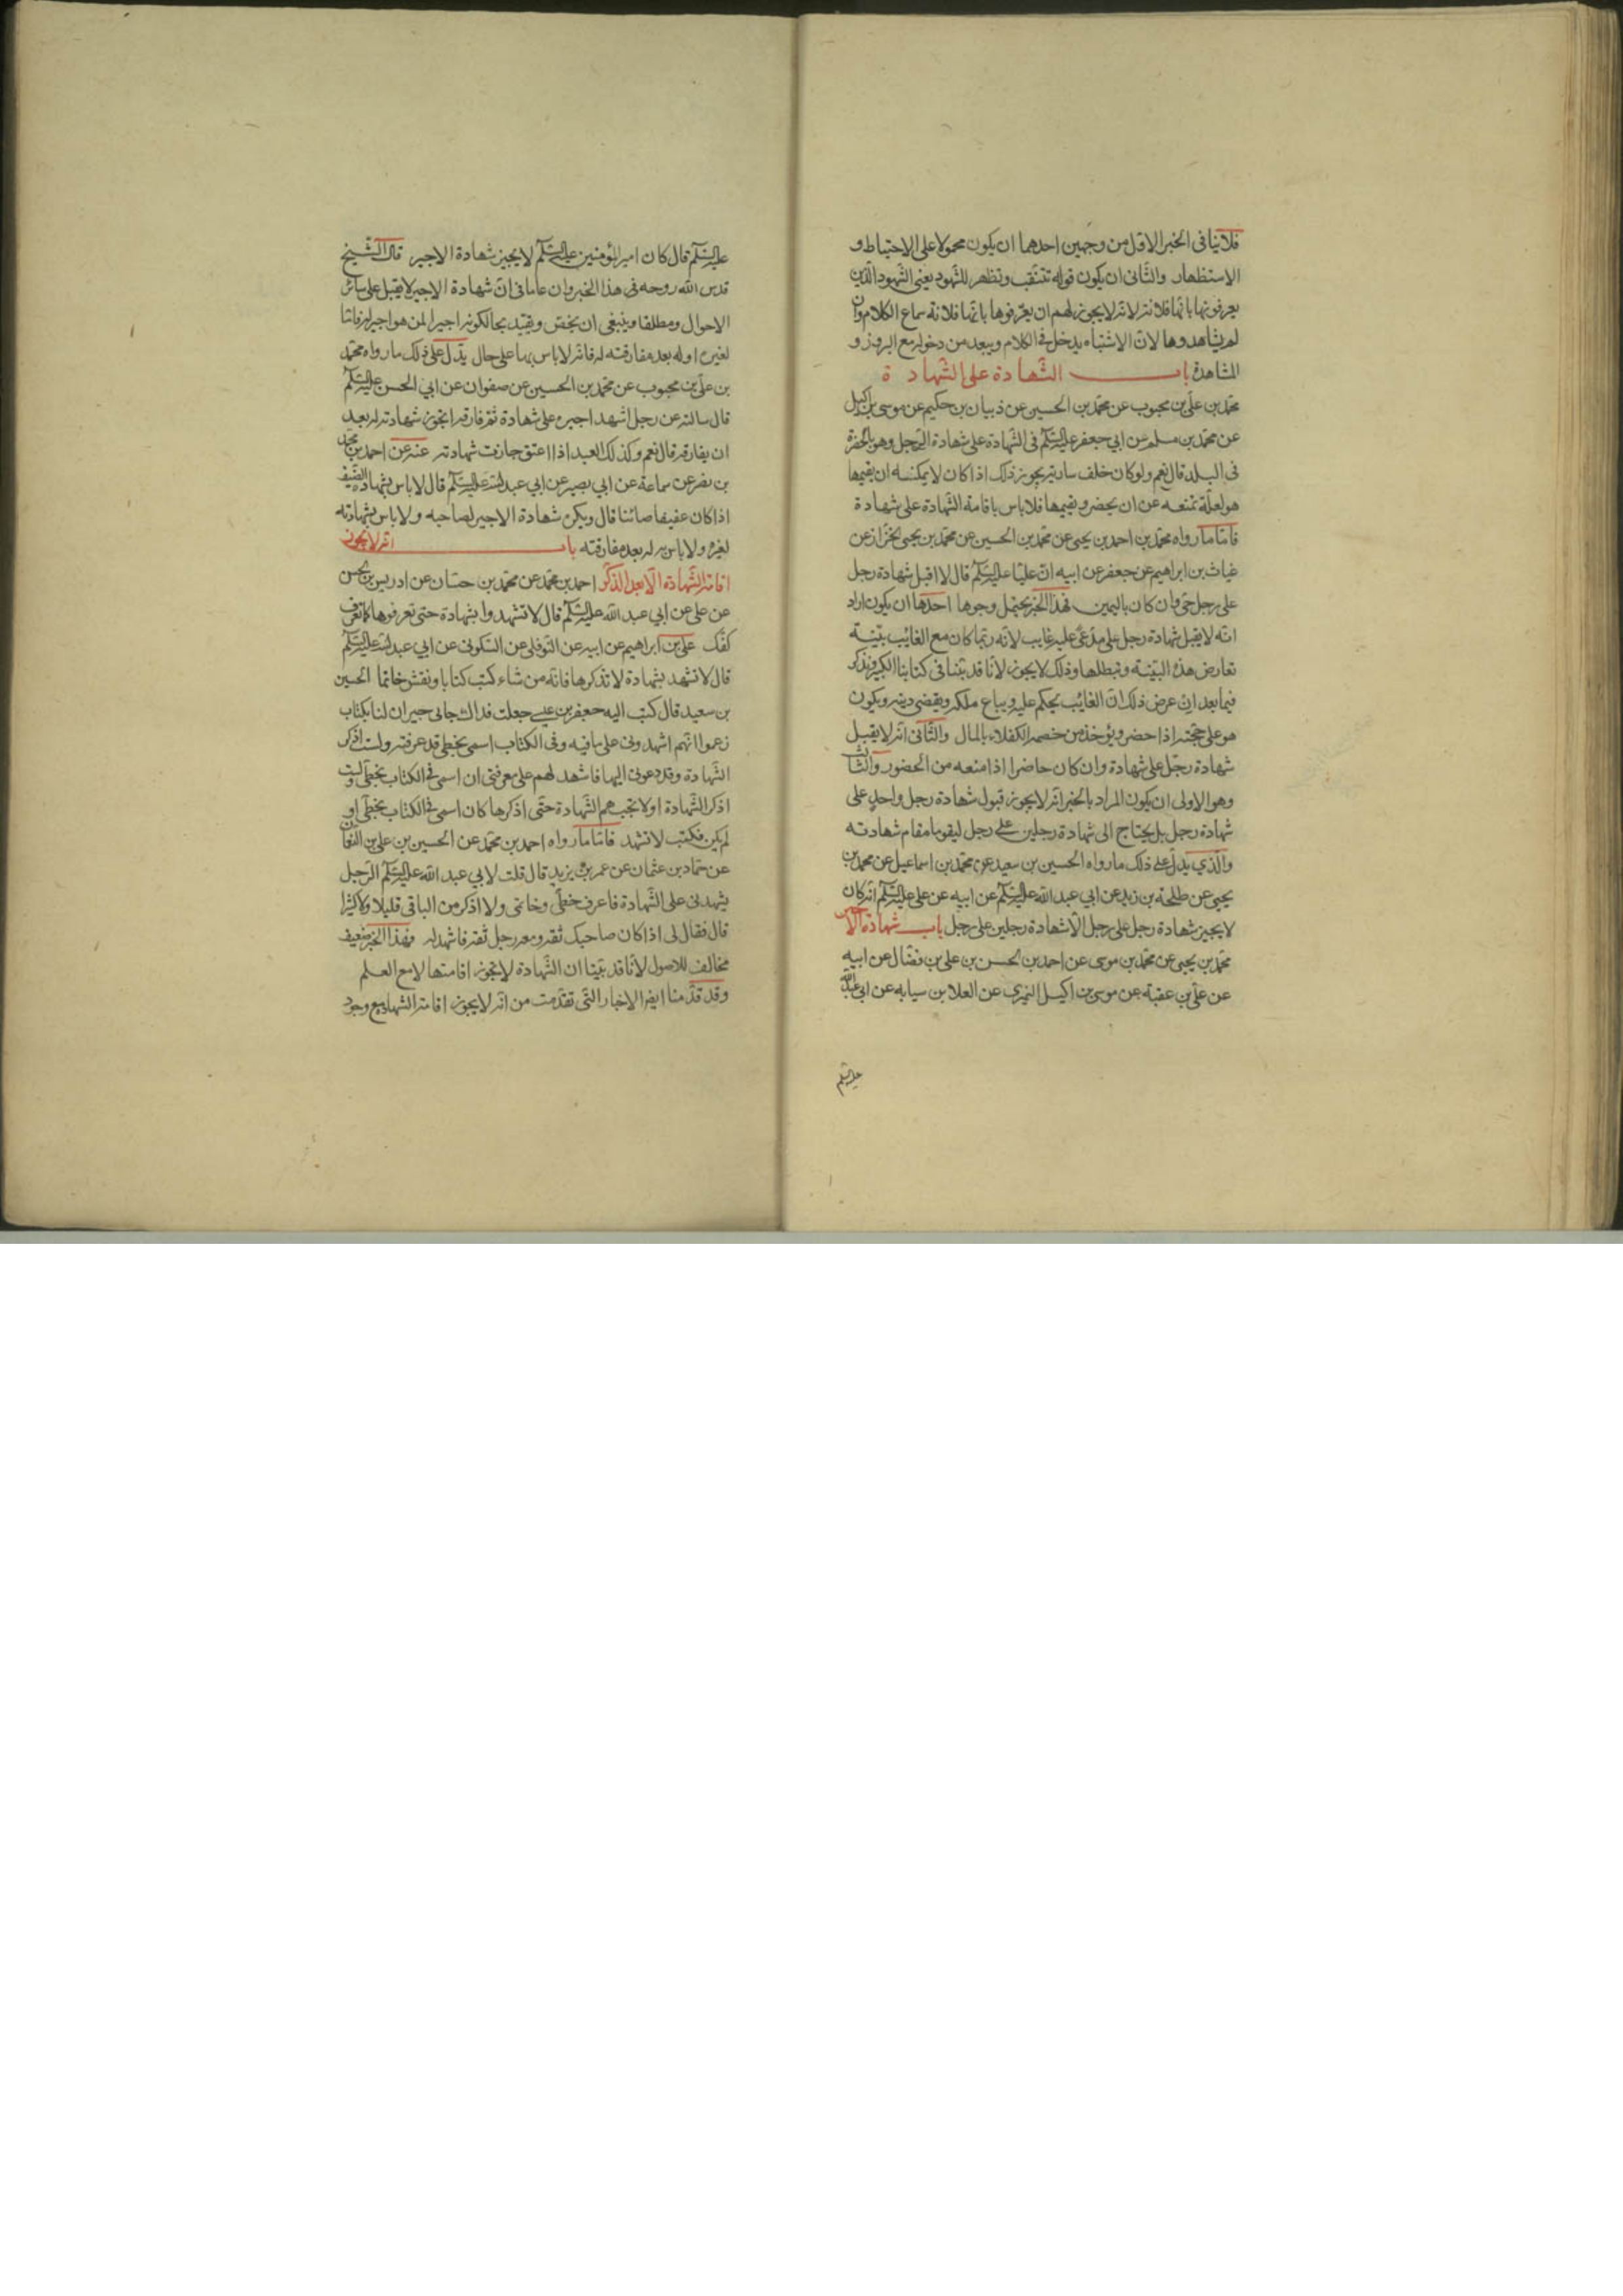 فلا ينافى الخبر الاول من وجهين احدهما ان يكون محمولا على الاحتياط و
الاستظهار والثانى ان يكون قوله تتنقب وتظهر للشهود يعنى الشهود الذين
يعرفونها بانها فلانة لانه لا يجوز لهم ان يعرفوها بانها فلانة سماع الكلام وان
لم يشاهدوها لان الاشتباه يدخل فى الكلام ويبعد من دخوله مع البروز و
المشاهدة باب الشهادة على الشهادة
محمد بن على بن محبوب عن محمد بن الحسين عن ذبيان بن حكيم عن موسى بن اكيل
عن محمد بن مسلم عن ابي جعفر عليه السلم فى الشهادة على شهادة الرجل وهو بالحضرة
فى البلد قال نعم ولو كان خلف سارية يجوز ذلك اذا كان لا يمكنه ان يقيمها
هو لعلة تمنعه عن ان يحضر ويقيمها فلا باس باقامة الشهادة على شهادة
فاما ما رواه محمد بن احمد بن يحيى عن محمد بن الحسين عن محمد بن يحيى الخزاز عن
غياث بن ابراهيم عن جعفر عن ابيه ان عليا عليه السلم قال لا اقبل شهادة رجل
على رجل حى وان كان باليمين فهذا الخبر يحتمل وجوها احدها ان يكون اراد
انه لا يقبل شهادة رجل على مدعى عليه غايب لانه ربما كان مع الغائب بينة
تعارض هذه البينة وتبطلها وذلك لا يجوز لانا قد بينا فى كتابنا الكبير ونذكر
فيما بعد ان عرض ذلك ان الغائب يحكم عليه ويباع ملكه ويقضى دينه ويكون
هو على حجته اذا حضر ويؤخذ من خصمه الكفلاء بالمال والثانى انه لا يقبل
شهادة رجل على شهادة وان كان حاضرا اذا منعه من الحضور والثالث
وهو الاولى ان يكون المراد بالخبر انه لا يجوز قبول شهادة رجل واحد على
شهادة رجل بل يحتاج الى شهادة رجلين على رجل ليقوما مقام شهادته
والذي يدل على ذلك ما رواه الحسين بن سعيد عن محمد بن اسماعيل عن محمد بن
يحيى عن طلحة بن زيد عن ابي عبد الله عليه السلم عن ابيه عن على عليه السلم انه كان
لا يجيز شهادة رجل على رجل الا شهادة رجلين على رجل باب شهادة الاجير
محمد بن يحيى عن محمد بن موسى عن احمد بن الحسن بن على بن فضال عن ابيه
عن على بن عقبة عن موسى بن اكيل النميري عن العلا بن سيابه عن ابى عبد الله
عليه السلم
عليه السلم قال كان امير المؤمنين عليه السلم لا يجيز شهادة الاجير قال الشيخ
قدس الله روحه فى هذا الخبر وان عاما فى ان شهادة الاجير لا يقبل على سائر
الاحوال ومطلقا وينبغى ان يخص ويقيد بحال كونه اجيرا لمن هو اجير له فاما
لغيره او له بعد مفارقته له فانه لا باس بها على حال يدل على ذلك ما رواه محمد
بن على بن محبوب عن محمد بن الحسين عن صفوان عن ابي الحسن عليه السلم
قال سالته عن رجل اشهد اجيره على شهادة ثم فارقه اتجوز شهادته له بعد
ان يفارقه قال نعم وكذلك العبد اذا اعتق جازت شهادته عنه عن احمد بن محمد
بن نصر عن سماعة عن ابي بصير عن ابي عبد الله عليه السلم قال لا باس بشهادة الضيف
اذا كان عفيفا صائنا قال ويكره شهادة الاجير لصاحبه ولا باس بشهادته
لغيره ولا باس به له بعد مفارقته باب انه لا يجوز
اقامة الشهادة الا بعد الذكر احمد بن محمد عن محمد بن حسان عن ادريس بن الحسن
عن على عن ابي عبد الله عليه السلم قال لا تشهدوا بشهادة حتى تعرفوها كما تعرف
كفك على بن ابراهيم عن ابيه عن النوفلى عن السكونى عن ابي عبد الله عليه السلم
قال لا تشهد بشهادة لا تذكرها فانه من شاء كتب كتابا ونقش خاتما الحسين
بن سعيد قال كتب اليه جعفر بن عيسى جعلت فداك جانى جيران لنا بكتاب
زعموا انهم اشهدونى على ما فيه وفى الكتاب اسمى بخطى قد عرفته ولست اذكر
الشهادة وقد دعونى اليها فاشهد لهم على معرفتى ان اسمى فى الكتاب بخطى ولست
اذكر الشهادة او لا تجب هم الشهادة حتى اذكرها كان اسمى فى الكتاب بخطى او
لم يكن فكتب لا تشهد فاما ما رواه احمد بن محمد عن الحسين بن على بن النعمان
عن حماد بن عثمان عن عمر بن يزيد قال قلت لابي عبد الله عليه السلم الرجل
يشهدنى على الشهادة فاعرف خطى وخاتمى ولا اذكر من الباقى قليلا ولا كثيرا
قال فقال لى اذا كان صاحبك ثقة ومعه رجل ثقة فاشهد له فهذا الخبر ضعيف
مخالف للاصول لانا قد بينا ان الشهادة لا تجوز اقامتها الا مع العلم
وقد قدمنا ايضا الاخبار التى تقدمت من انه لا يجوز اقامة الشهادة مع وجود